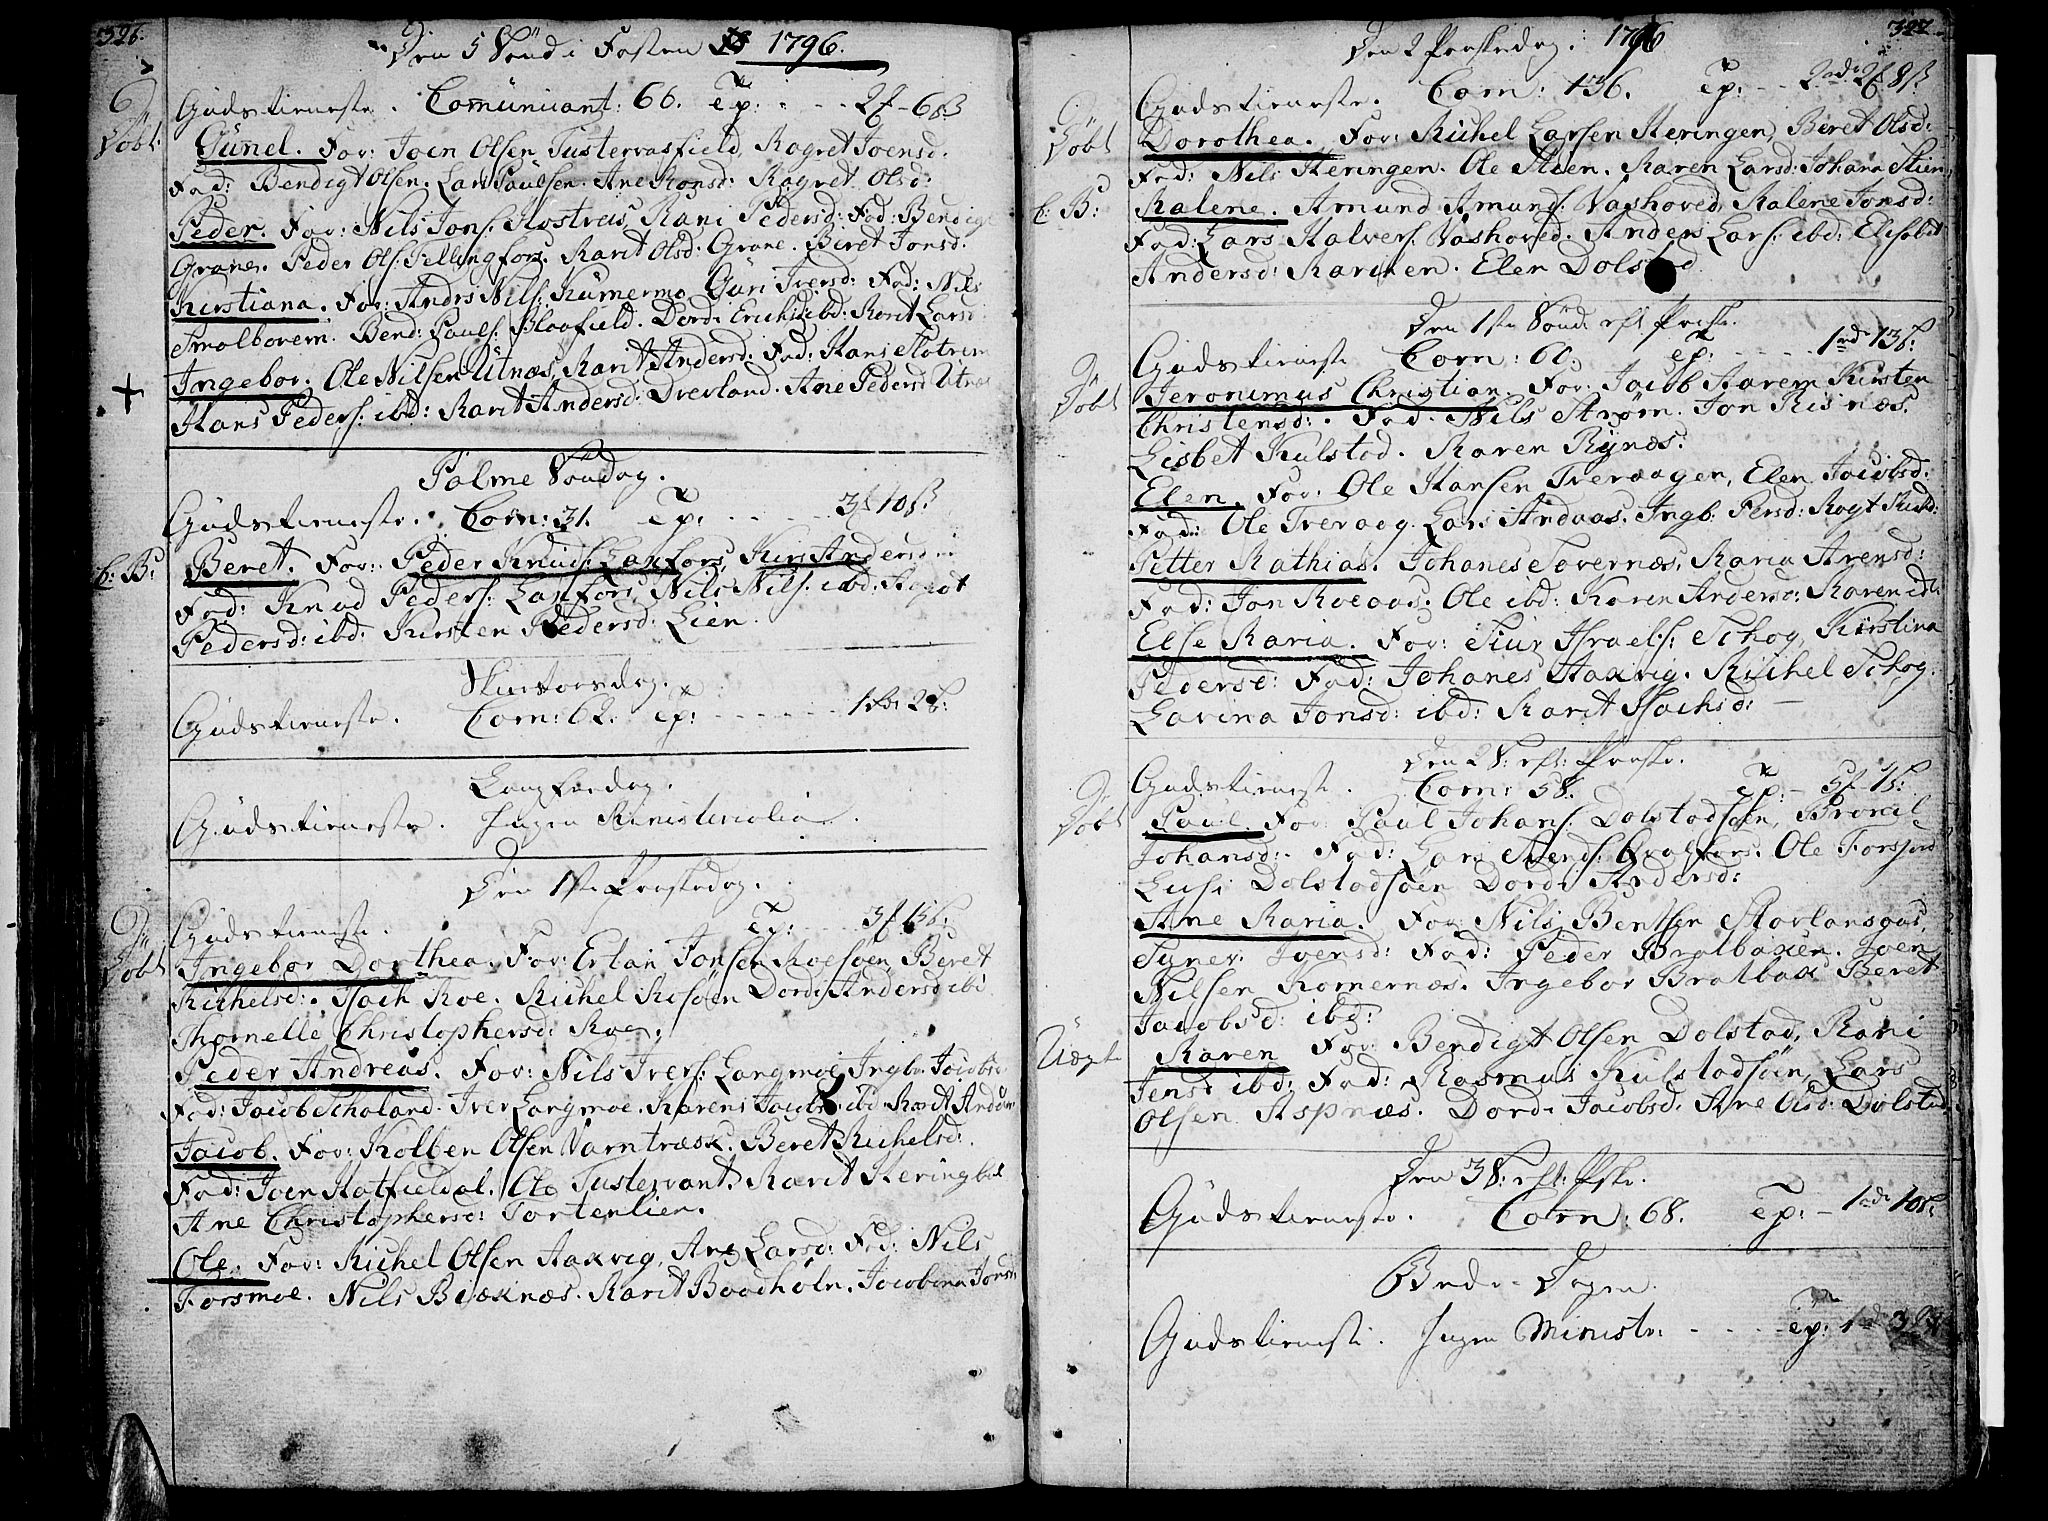 326.
Den 5 Sönd: i Fasten 1796.
Gudstieneste. Comunicant: 66. Tp: - - - 2f - 6sβ
Döbt
Gunel. For: Joen Olsen Tustervasfield, Magret Joensd.
Fad: Bendigt Olsen. Lars Paulsen. Ane Monsd: Magret Olsd:
Peder. For: Nils Jons: Klostreis, Mari Pedersd: Fad: Bendigt
Grane. Peder Ols: Fellingfors. Marit Olsd: Grane. Beret Jonsd.
Kirstiana. For: Andrs Nils: Kumermo, Guri Iversd: Fad: Nils
Smolborem. Bend: Pauls: Blaafield. Dord: Erichsd: ibd: Marit Larsd:
Ingebor. Ole Nilsen Utnæs, Marit Andersd: Fad: Hans
Hans Peders: ibd: Marit Andersd: Dreland. Ane Pedersd Utnæs
Palme Söndag.
Gudstieneste. Com: 31. Tp: - - - 3f 10β.
C: B:
Beret. For: Peder Knuds: Laxfors, Kirs: Andersd:
Fad: Knud Peders: Laxfors, Nils Nils: ibd:
Pedersd: ibd: Kirsten Pedersd: Lien.
Skiertorsdag.
Gudstieneste. Com: 62. Tp: - - - 2β:
Langfredag.
Gudstieneste. Ingen Ministerialia.
Den 1ste Paaskedag.
Gudstieneste. Tp: - - - 3f 15β.
Döbt
Ingebor Dorthea. For: Erlan Jonsen Moesöen, Beret
Michelsd: Isach Moe. Michel Mosöen Dord: Andersd ibd
Thornelle Christophersd: Moe.
Peder Andreas. For: Nils Ivers: Langmoe, Ingb: Jacobsd
Fad: Jacob Scholand. Iver Langmoe. Karen Jacobsd: ibd: Marit
Jacob. For: Kolben Olsen Varntræsk. Beret Michelsd:
Fad: Joen Hatfieldal. Ole Tustervant. Marit Heringbot
Ane Christophersd: Tortenlien.
Ole. For: Michel Olsen Aakvig, Ane Larsd: Fad: Nils
Forsmoe. Nils Biæknæs. Marit Baadholn. Jacobina Jonsd:
327.
Den 2 Paaskedag. 1796
Gudstieneste. Com: 136. Tp: - - 2rd: 2f 8β.
Döbt
Dorothea. For: Michel Larsen Heringen, Beret Olsd:
Fad: Nils Heringen. Ole Steen. Maren Larsd: Johana Stien
C: B:
Malene. Amund Amunds: Vashoved, Malene Jonsd:
Fad: Lars Halvers: Vashoved. Anders Lars: ibd: Elisabet
Andersd: Marken. Elen Dolstad
Den 1ste Sönd: eft: Paaske.
Gudstieneste Com: 60. Tp: - - - 1rd 13β:
Döbt
Jeronimus Christian. For: Jacob Aarem Kirsten
Christensd:. Fad: Nils Strøm. Jon Risnæs.
Lisbet Kulstad. Maren Rynæs:
Elen. For: Ole Hansen Treraagen, Elen Jacobsd:
Fad: Ole Treraag. Lars Andaas. Ingb: Persd: Magt
Petter Mathias. Johanes Tovernæs, Maria Arensd:
Fad: Jon Moeaas. Ole ibd: Karen Andersd: Maren ibd:
Else Maria. For: Siur Israels: Schog, Kirstina
Pedersd: Fad: Johanes Aakvig. Michel Schog.
Lavina Jonsd: ibd: Marit Isachsd:
Den 2 S: eft: Paaske.
Gudstieneste. Com: 58. Tp: - 5f 1β:
Döbt
Paul. For: Paul Johans: Dolstadsöen, Bronil
Johansd:. Fad: Lars Svends: Qvalfors. Ole Forsjord
Lusi Dolstadsöen Dord: Andersd:
Ane Maria. For: Nils Bentsen Storlansgas,
Synev: Joensd: Fad: Peder Bratbaken. Joen
Nilsen Komernæs. Ingebor Bratbak Beret
Jacobsd: ibd:
Uægte
Maren For: Bendigt Olsen Dolstad, Mari
Jensd ibd: Fad: Rasmus Kulstadsöen, Lars
Olsen Aspnæs. Dord: Jacobsd. Ane Olsd: Dolstad
Den 3 S: eft: Pske.
Gudstieneste. Com: 68. Tp: - 1rd 10β:
Bede-Dagen.
Gudstieneste. Ingen Ministr: - - - Tp: